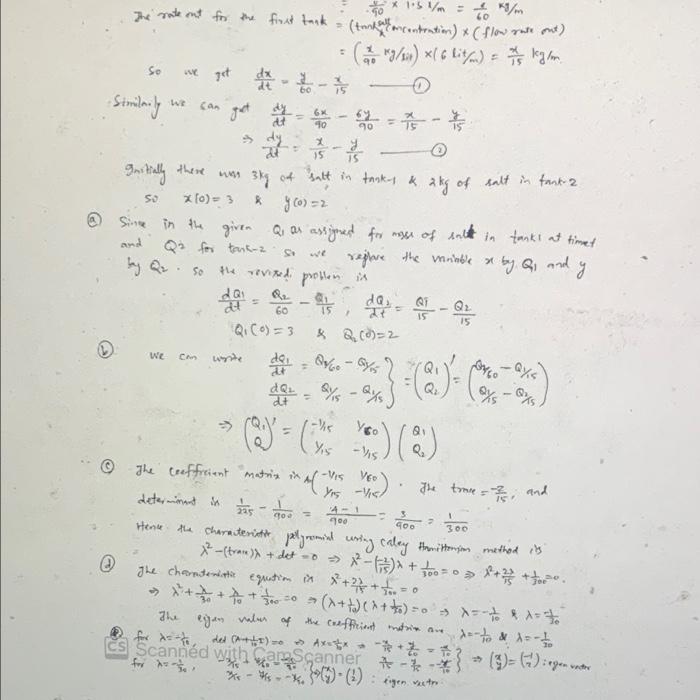 = y/90 × 1.5 l/m = y/60 kg/m
The rate out for the first tank = (tank salt concentration) × (flow rate out)
= (x/90 kg/lit) × (6 lit/m) = x/15 kg/m.
So we get dx/dt = y/60 - x/15 —①
Similarly we can get dy/dt = 6x/90 - 6y/90 = x/15 - y/15
⇒ dy/dt = x/15 - y/15 —②
Initially there was 3kg of salt in tank-1 & 2kg of salt in tank-2
so x(0) = 3 & y(0) = 2
ⓐ Since in the given Q1 as assigned for mass of salt in tank1 at time t
and Q2 for tank-2 so we replace the variable x by Q1 and y
by Q2. so the revised problem is
dQ1/dt = Q2/60 - Q1/15, dQ2/dt = Q1/15 - Q2/15
Q1(0) = 3 & Q2(0) = 2
ⓑ we can write dQ1/dt = Q2/60 - Q1/15
dQ2/dt = Q1/15 - Q2/15 } = (Q1 Q2)' = (Q2/60 - Q1/15 Q1/15 - Q2/15)
⇒ (Q1 Q2)' = (-1/15 1/60 1/15 -1/15) (Q1 Q2)
ⓒ The coefficient matrix is (-1/15 1/60 1/15 -1/15). The trace = -2/15, and
determinant is 1/225 - 1/900 = 4-1/900 = 3/900 = 1/300
Hence the characteristic polynomial using caley Hamiltonian method is
λ² - (trace)λ + det = 0 ⇒ λ² - (-2/15)λ + 1/300 = 0 ⇒ λ² + 2λ/15 + 1/300 = 0.
ⓓ The characteristic equation is λ² + 2λ/15 + 1/300 = 0
⇒ λ² + λ/30 + λ/10 + 1/300 = 0 ⇒ (λ + 1/10)(λ + 1/30) = 0 ⇒ λ = -1/10 & λ = -1/30
The eigen values of the coefficient matrix are λ = -1/10 & λ = -1/30
for λ = -1/10, det (A + 1/10 I) = 0 ⇒ AX = -1/10 X ⇒ -x/15 + y/60 = -x/10
x/15 - y/15 = -y/10 } ⇒ (x y) = (-1 2) : eigen vector
for λ = -1/30, -x/15 + y/60 = -x/30
x/15 - y/15 = -y/30 } ⇒ (x y) = (1 2) : eigen vector.
CS Scanned with CamScanner